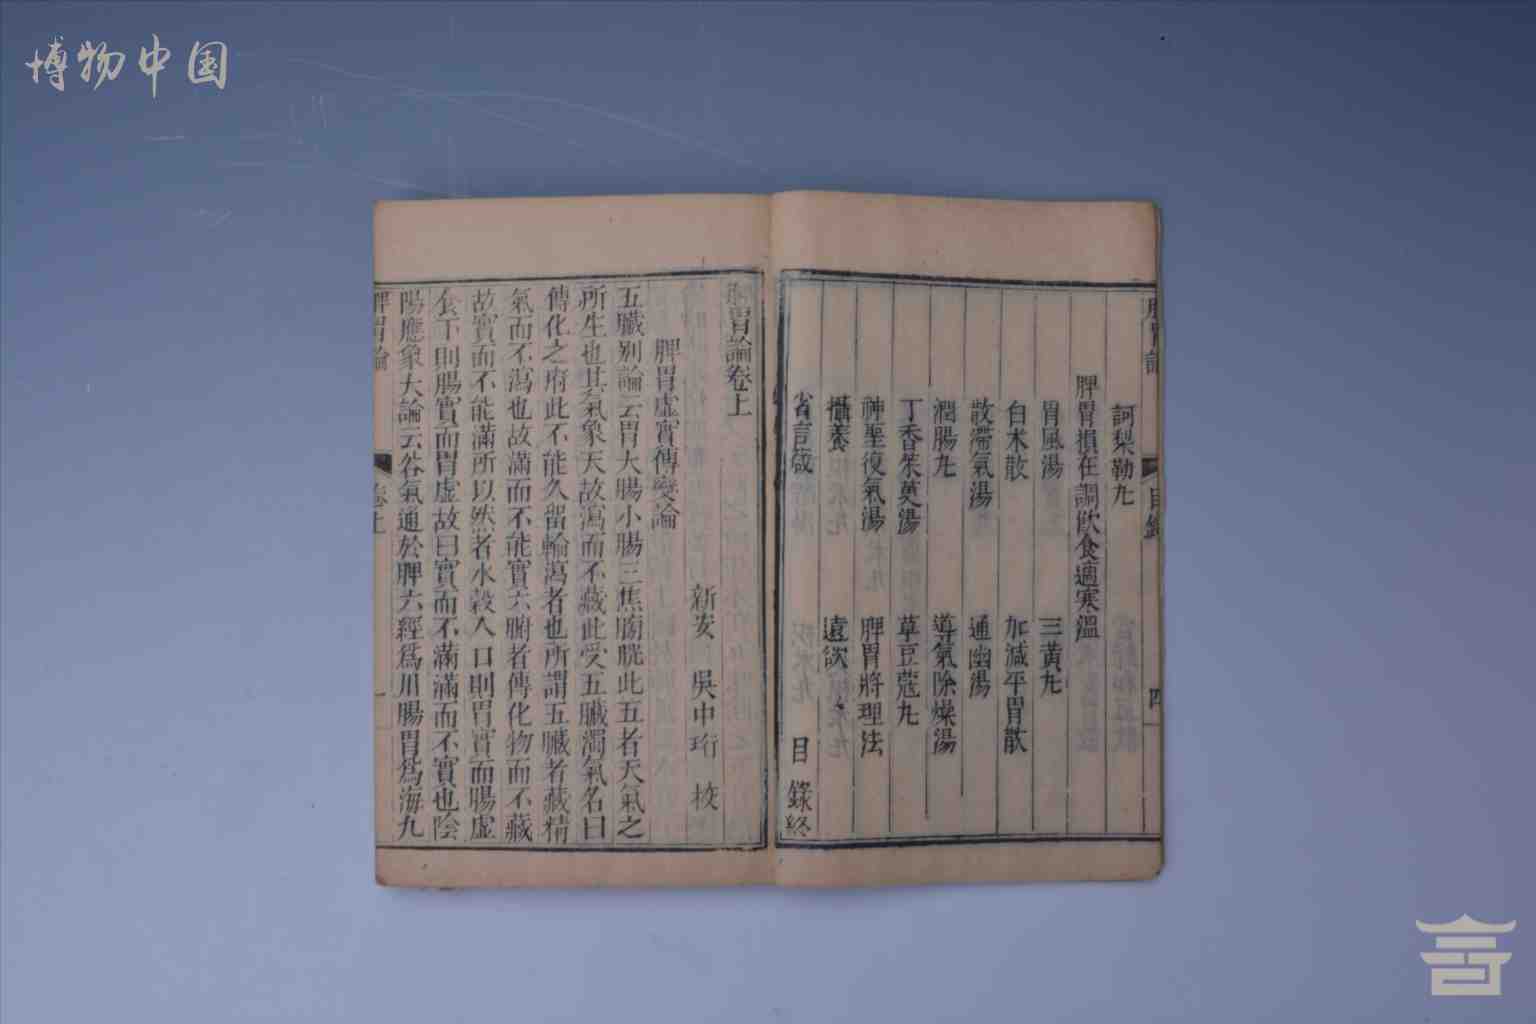 博物中国
脾胃論
目錄
四
訶梨勒丸
脾胃損在調飲食適寒溫
胃風湯
三黃丸
白术散
加減平胃散
散滯氣湯
通幽湯
潤腸丸
導氣除燥湯
丁香茱萸湯
草豆蔻丸
神聖復氣湯
脾胃將理法
攝養
遠欲
省言箴
目錄終
脾胃論卷上
新安 吳中珩 校
脾胃虛實傳變論
五臟別論云胃大腸小腸三焦膀胱此五者天氣之
所生也其氣象天故瀉而不藏此受五臟濁氣名曰
傳化之府此不能久留輸瀉者也所謂五臟者藏精
氣而不瀉也故滿而不能實六腑者傳化物而不藏
故實而不能滿所以然者水穀入口則胃實而腸虛
食下則腸實而胃虛故曰實而不滿滿而不實也陰
陽應象大論云谷氣通於脾六經為川腸胃為海九
脾胃論
卷上
一